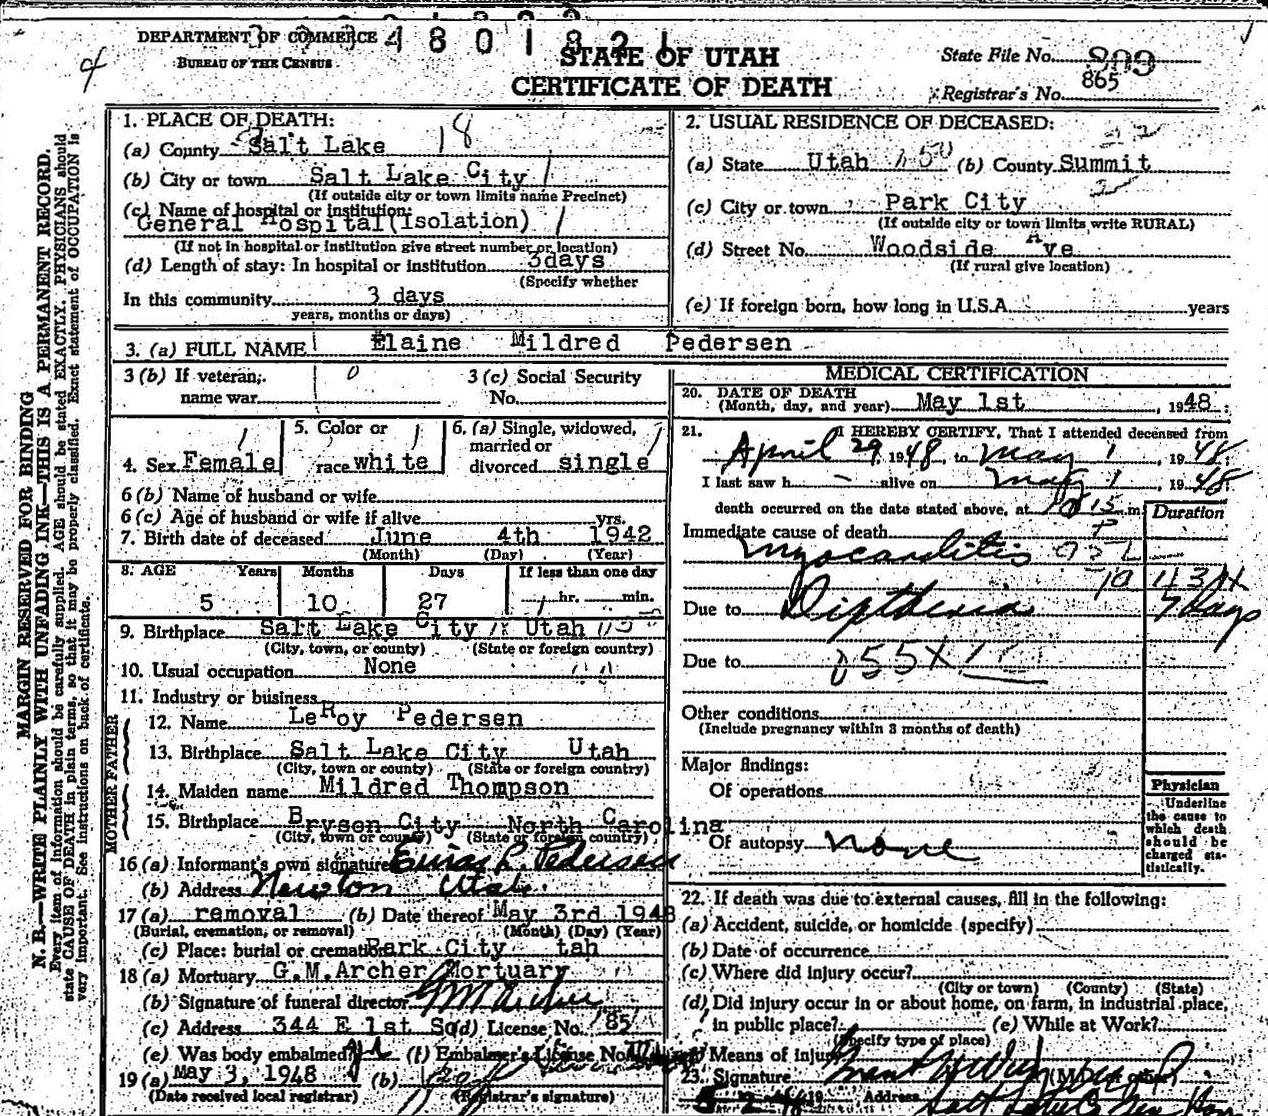 DEPARTMENT OF COMMERCE
BUREAU OF THE CENSUS
4801821
STATE OF UTAH
CERTIFICATE OF DEATH
State File No. 809
Registrar's No. 865
MARGIN RESERVED FOR BINDING
N. B.—WRITE PLAINLY WITH UNFADING INK—THIS IS A PERMANENT RECORD.
Every item of information should be carefully supplied. AGE should be stated EXACTLY. PHYSICIANS should
state CAUSE OF DEATH in plain terms, so that it may be properly classified. Exact statement of OCCUPATION is
very important. See instructions on back of certificate.
1. PLACE OF DEATH:
(a) County Salt Lake 18
(b) City or town Salt Lake City
(If outside city or town limits name Precinct)
(c) Name of hospital or institution:
General Hospital (Isolation)
(If not in hospital or institution give street number or location)
(d) Length of stay: In hospital or institution 3days
(Specify whether
In this community 3 days
years, months or days)
2. USUAL RESIDENCE OF DECEASED:
(a) State Utah (b) County Summit
(c) City or town Park City
(If outside city or town limits write RURAL)
(d) Street No. Woodside Ave
(If rural give location)
(e) If foreign born, how long in U.S.A. years
3. (a) FULL NAME Elaine Mildred Pedersen
3 (b) If veteran,
name war
0
3 (c) Social Security
No.
4. Sex Female
5. Color or
race white
6. (a) Single, widowed,
married or
divorced single
6 (b) Name of husband or wife
6 (c) Age of husband or wife if alive yrs.
7. Birth date of deceased June 4th 1942
(Month) (Day) (Year)
8. AGE Years Months Days If less than one day
5 10 27 hr. min.
9. Birthplace Salt Lake City Utah
(City, town, or county) (State or foreign country)
10. Usual occupation None
11. Industry or business
FATHER
12. Name LeRoy Pedersen
13. Birthplace Salt Lake City Utah
(City, town or county) (State or foreign country)
MOTHER
14. Maiden name Mildred Thompson
15. Birthplace Bryson City North Carolina
(City, town or county) (State or foreign country)
16 (a) Informant's own signature Pedersen
(b) Address Newton Utah.
17 (a) removal (b) Date thereof May 3rd 1948
(Burial, cremation, or removal) (Month) (Day) (Year)
(c) Place: burial or cremation Park City tah
18 (a) Mortuary G.M.Archer Mortuary
(b) Signature of funeral director G M Archer
(c) Address 344 E 1st So (d) License No. 85
(e) Was body embalmed? (f) Embalmer's License No.
19 (a) May 3, 1948 (b)
(Date received local registrar) (Registrar's signature)
MEDICAL CERTIFICATION
20. DATE OF DEATH
(Month, day, and year) May 1st, 1948
21. I HEREBY CERTIFY, That I attended deceased from
April 29, 1948, to May 1, 1948
I last saw h — alive on May 1, 1948
death occurred on the date stated above, at 15 m.
Duration
Immediate cause of death
Myocarditis
Due to Diptheria 7 days
Due to 055X
Other conditions
(Include pregnancy within 3 months of death)
Major findings:
Of operations
Of autopsy none
Physician
Underline
the cause to
which death
should be
charged sta-
tistically.
22. If death was due to external causes, fill in the following:
(a) Accident, suicide, or homicide (specify)
(b) Date of occurrence
(c) Where did injury occur?
(City or town) (County) (State)
(d) Did injury occur in or about home, on farm, in industrial place,
in public place? (e) While at Work?
(Specify type of place)
Means of injury
23. Signature
Address